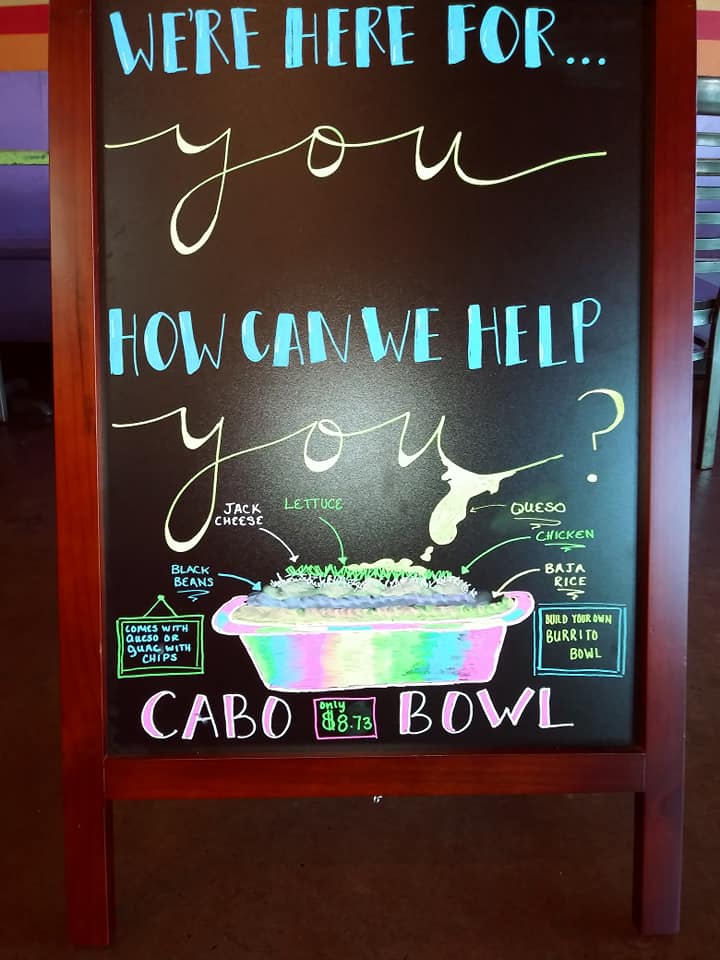 WE'RE HERE FOR...
you
HOW CAN WE HELP
you?
JACK
CHEESE
LETTUCE
QUESO
CHICKEN
BLACK
BEANS
BAJA
RICE
COMES WITH
QUESO OR
guac WITH
CHIPS
BUILD YOUR OWN
BURRITO
BOWL
CABO
only
$8.73
BOWL